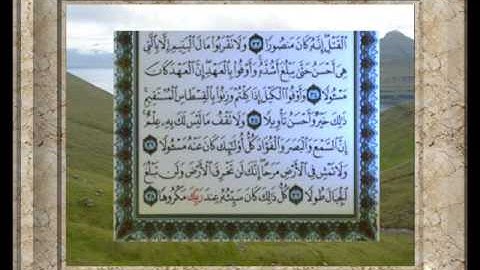 ٱلْقَتْلِ إِنَّهُۥ كَانَ مَنصُورًا ٣٣ وَلَا تَقْرَبُوا۟ مَالَ ٱلْيَتِيمِ إِلَّا بِٱلَّتِى
هِىَ أَحْسَنُ حَتَّىٰ يَبْلُغَ أَشُدَّهُۥ وَأَوْفُوا۟ بِٱلْعَهْدِ إِنَّ ٱلْعَهْدَ كَانَ
مَسْـُٔولًا ٣٤ وَأَوْفُوا۟ ٱلْكَيْلَ إِذَا كِلْتُمْ وَزِنُوا۟ بِٱلْقِسْطَاسِ ٱلْمُسْتَقِيمِ
ذَٰلِكَ خَيْرٌ وَأَحْسَنُ تَأْوِيلًا ٣٥ وَلَا تَقْفُ مَا لَيْسَ لَكَ بِهِۦ عِلْمٌ
إِنَّ ٱلسَّمْعَ وَٱلْبَصَرَ وَٱلْفُؤَادَ كُلُّ أُو۟لَـٰٓئِكَ كَانَ عَنْهُ مَسْـُٔولًا ٣٦
وَلَا تَمْشِ فِى ٱلْأَرْضِ مَرَحًا إِنَّكَ لَن تَخْرِقَ ٱلْأَرْضَ وَلَن تَبْلُغَ
ٱلْجِبَالَ طُولًا ٣٧ كُلُّ ذَٰلِكَ كَانَ سَيِّئُهُۥ عِندَ رَبِّكَ مَكْرُوهًا ٣٨